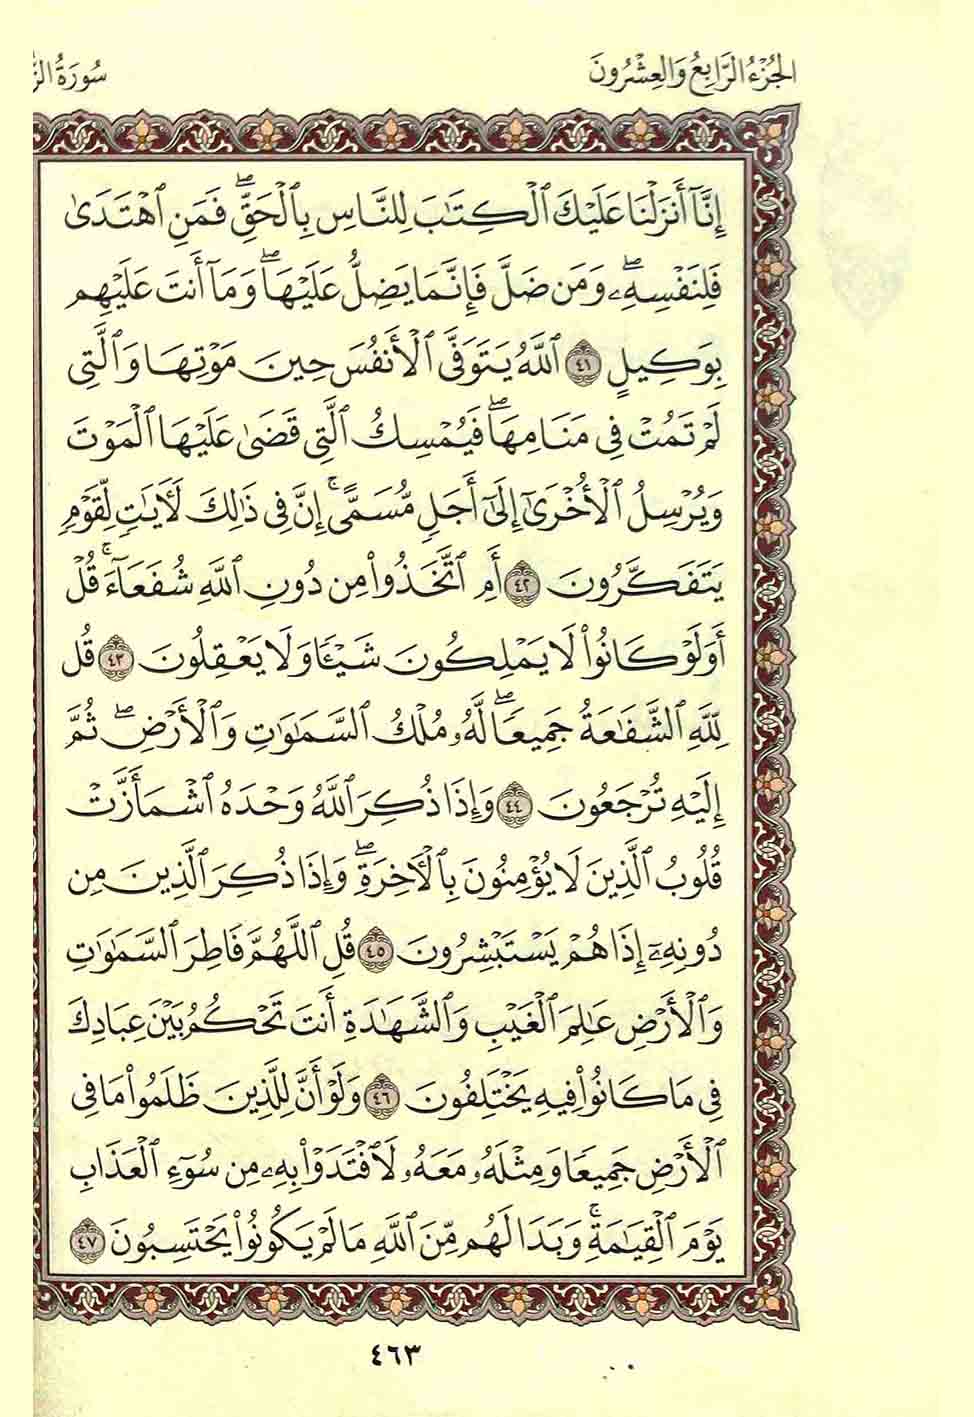 الجُزْءُ الرَّابِعُ وَالعِشْرُونَ
سُورَةُ
إِنَّآ أَنزَلْنَا عَلَيْكَ ٱلْكِتَٰبَ لِلنَّاسِ بِٱلْحَقِّۖ فَمَنِ ٱهْتَدَىٰ
فَلِنَفْسِهِۦۖ وَمَن ضَلَّ فَإِنَّمَا يَضِلُّ عَلَيْهَاۖ وَمَآ أَنتَ عَلَيْهِم
بِوَكِيلٍ ٤١ ٱللَّهُ يَتَوَفَّى ٱلْأَنفُسَ حِينَ مَوْتِهَا وَٱلَّتِى
لَمْ تَمُتْ فِى مَنَامِهَاۖ فَيُمْسِكُ ٱلَّتِى قَضَىٰ عَلَيْهَا ٱلْمَوْتَ
وَيُرْسِلُ ٱلْأُخْرَىٰٓ إِلَىٰٓ أَجَلٍ مُّسَمًّىۚ إِنَّ فِى ذَٰلِكَ لَءَايَٰتٍ لِّقَوْمٍ
يَتَفَكَّرُونَ ٤٢ أَمِ ٱتَّخَذُوا۟ مِن دُونِ ٱللَّهِ شُفَعَآءَۚ قُلْ
أَوَلَوْ كَانُوا۟ لَا يَمْلِكُونَ شَيْـًٔا وَلَا يَعْقِلُونَ ٤٣ قُل
لِّلَّهِ ٱلشَّفَٰعَةُ جَمِيعًاۖ لَّهُۥ مُلْكُ ٱلسَّمَٰوَٰتِ وَٱلْأَرْضِۖ ثُمَّ
إِلَيْهِ تُرْجَعُونَ ٤٤ وَإِذَا ذُكِرَ ٱللَّهُ وَحْدَهُ ٱشْمَأَزَّتْ
قُلُوبُ ٱلَّذِينَ لَا يُؤْمِنُونَ بِٱلْءَاخِرَةِۖ وَإِذَا ذُكِرَ ٱلَّذِينَ مِن
دُونِهِۦٓ إِذَا هُمْ يَسْتَبْشِرُونَ ٤٥ قُلِ ٱللَّهُمَّ فَاطِرَ ٱلسَّمَٰوَٰتِ
وَٱلْأَرْضِ عَٰلِمَ ٱلْغَيْبِ وَٱلشَّهَٰدَةِ أَنتَ تَحْكُمُ بَيْنَ عِبَادِكَ
فِى مَا كَانُوا۟ فِيهِ يَخْتَلِفُونَ ٤٦ وَلَوْ أَنَّ لِلَّذِينَ ظَلَمُوا۟ مَا فِى
ٱلْأَرْضِ جَمِيعًا وَمِثْلَهُۥ مَعَهُۥ لَٱفْتَدَوْا۟ بِهِۦ مِن سُوٓءِ ٱلْعَذَابِ
يَوْمَ ٱلْقِيَٰمَةِۚ وَبَدَا لَهُم مِّنَ ٱللَّهِ مَا لَمْ يَكُونُوا۟ يَحْتَسِبُونَ ٤٧
٤٦٣